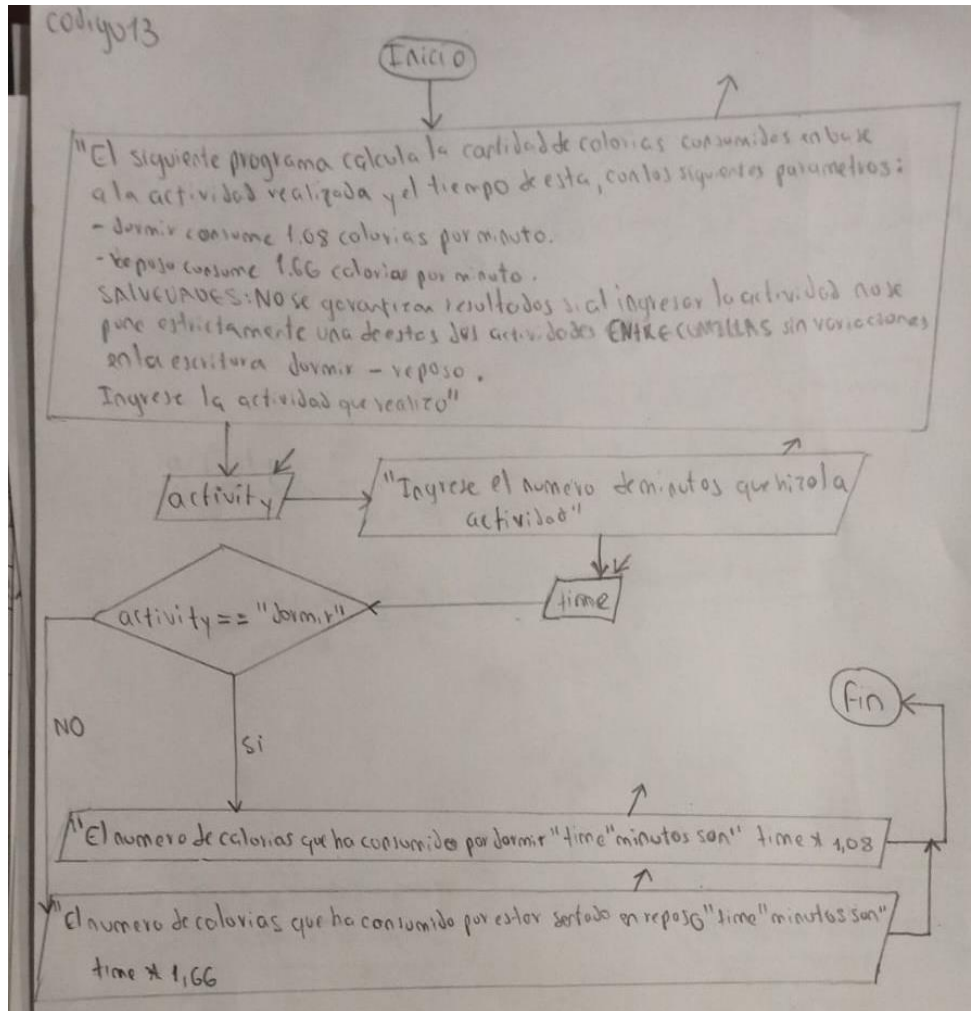 codigo13
Inicio
"El siguiente programa calcula la cantidad de calorias consumidas en base
a la actividad realizada y el tiempo de esta, con los siguientes parametros:
- dormir consume 1.08 calorias por minuto.
- Reposo consume 1.66 calorias por minuto.
SALVEDADES: NO se garantizan resultados si al ingresar la actividad no se
pone estrictamente una de estas dos actividades ENTRE COMILLAS sin variaciones
en la escritura dormir - reposo.
Ingrese la actividad que realizo"
activity
"Ingrese el numero de minutos que hizo la
actividad"
time
activity == "dormir"
Fin
NO
Si
"El numero de calorias que ha consumido por dormir "time" minutos son" time * 1,08
"El numero de calorias que ha consumido por estar sentado en reposo "time" minutos son"
time * 1,66